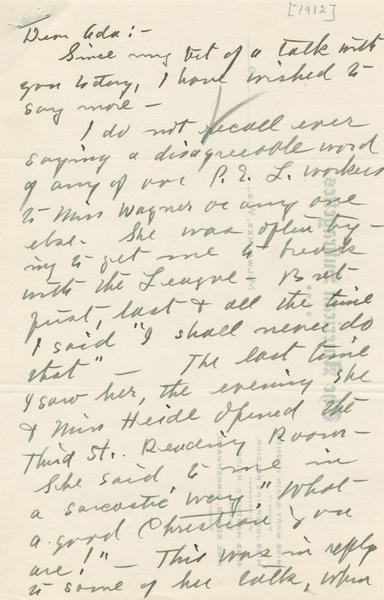 [1912]
Dear Ada:-
Since my bit of a talk with
you today, I have wished to
say more -
I do not recall ever
saying a disagreeable word
of any of our P. E. L. workers
to Miss Wagner or any one
else. She was often try-
ing to get me to break
with the League - But
first, last & all the time
I said "I shall never do
that" - The last time
I saw her, the evening she
& Miss Heide opened the
Third St. Reading Room -
She said to me in
a sarcastic way, "What
a good Christian you
are!" - This was in reply
to some of her talk, when